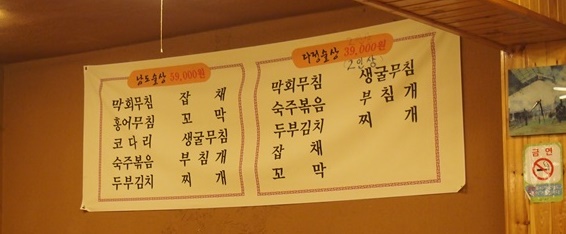 남도술상 59,000원
막회무침 잡 채
홍어무침 꼬 막
코 다 리 생굴무침
숙주볶음 부 침 개
두부김치 찌 개
다정술상 39,000원
2인상
막회무침 생굴무침
숙주볶음 부 침 개
두부김치 찌 개
잡 채
꼬 막
금 연